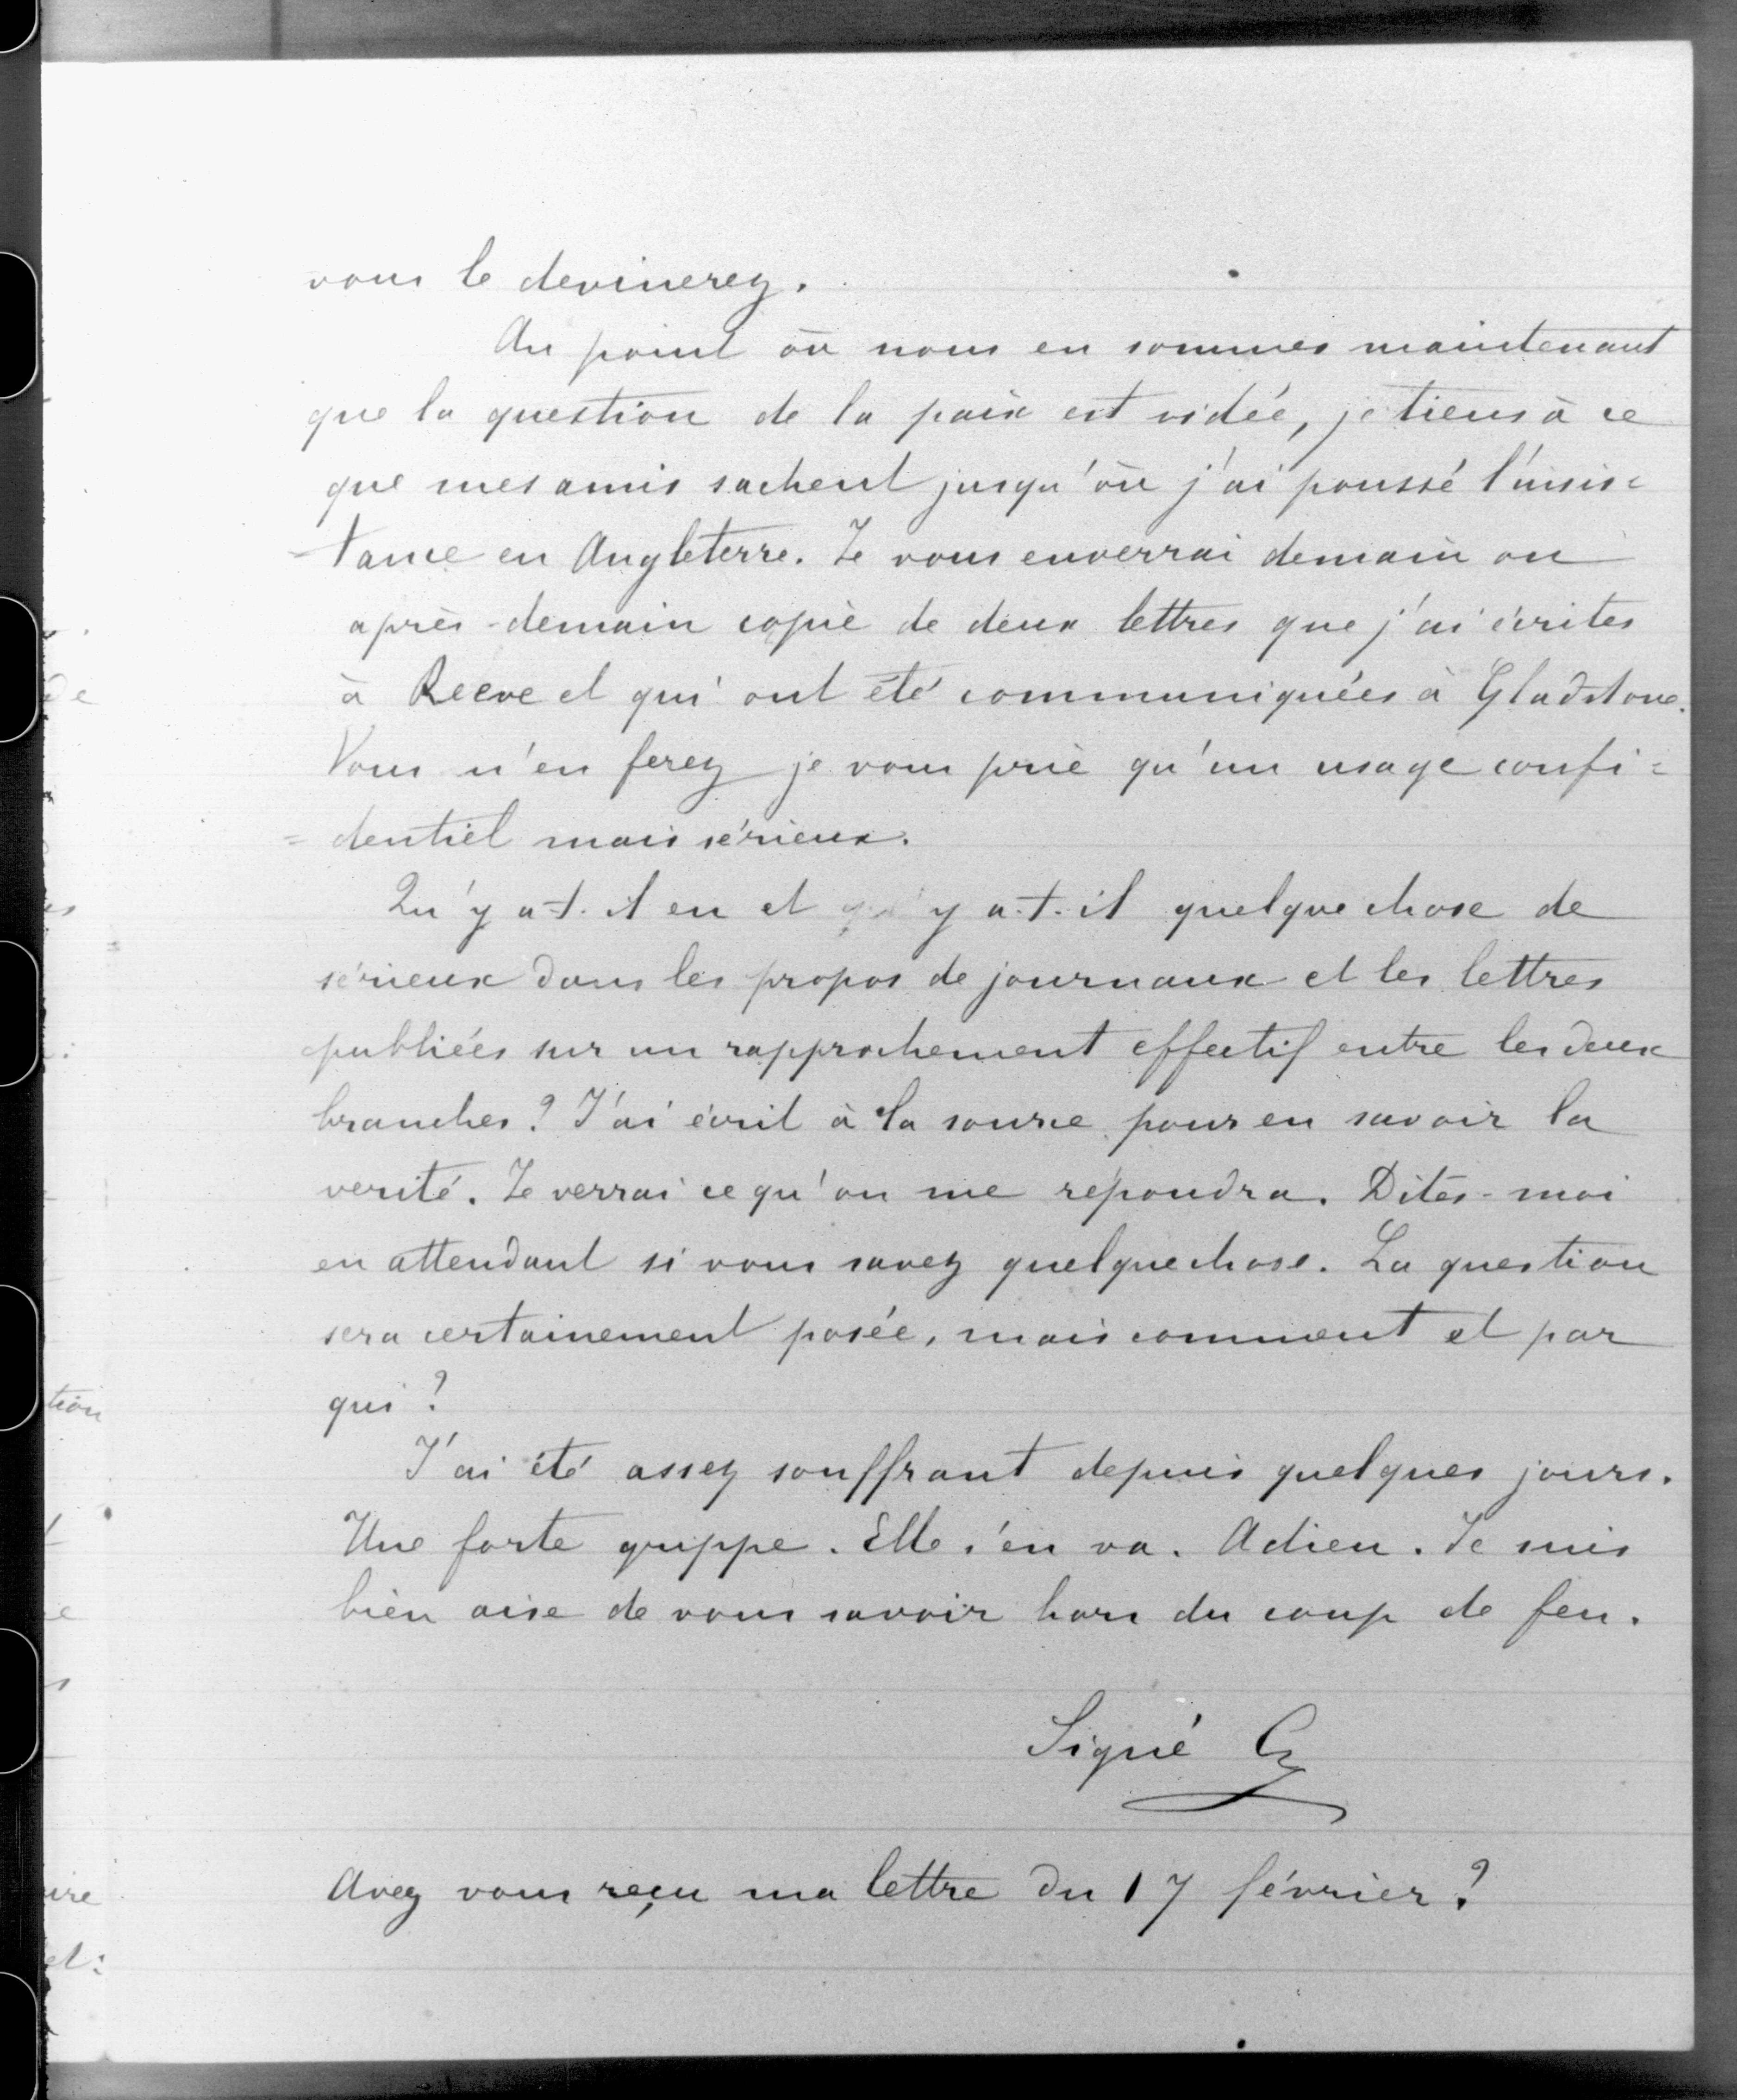 vous le devinerez.
Au point où nous en sommes maintenant
que la question de la paix est vidée, je tiens à ce
que mes amis sachent jusqu'où j'ai poussé l'insis=
=tance en Angleterre. Je vous enverrai demain ou
après-demain copie de deux lettres que j'ai écrites
à Reeve et qui ont été communiquées à Gladstone.
Vous n'en ferez je vous prie qu'un usage confi=
=dentiel mais sérieux.
Qu'y a-t-il en et y a-t-il quelque chose de
sérieux dans les propos de journaux et les lettres
publiées sur un rapprochement effectif entre les deux
branches? J'ai écrit à la source pour en savoir la
verité. Je verrai ce qu'on me répondra. Dites-moi
en attendant si vous savez quelque chose. La question
sera certainement posée, mais comment et par
qui?
J'ai été assez souffrant depuis quelques jours.
Une forte grippe. Elle s'en va. Adieu. Je suis
bien aise de vous savoir hors du coup de feu.
Signé G
Avez vous reçu ma lettre du 17 février?